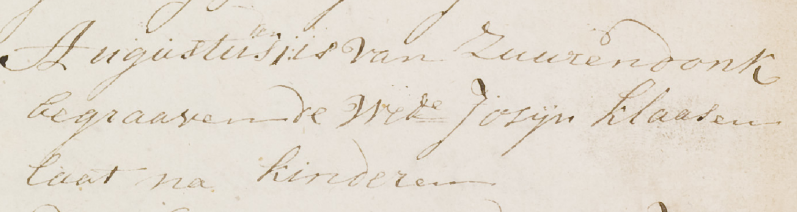 Augustus is van Zuurendonk
begraaven de Wede Josijn Klaasen
laat na kinderen